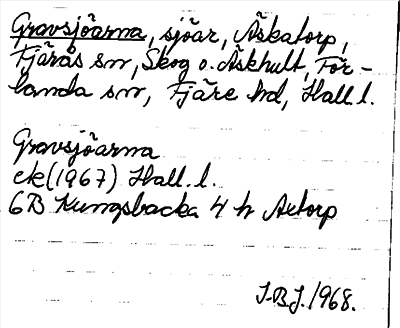 Gravsjöarna, sjöar, Äskatorp,
Fjärås sn, Skog o. Äskhult, För-
landa sn, Fjäre hd, Hall. l.
Gravsjöarna
ek (1967) Hall. l.
6B Kungsbacka 4 h Aetorp
J.B.J. 1968.